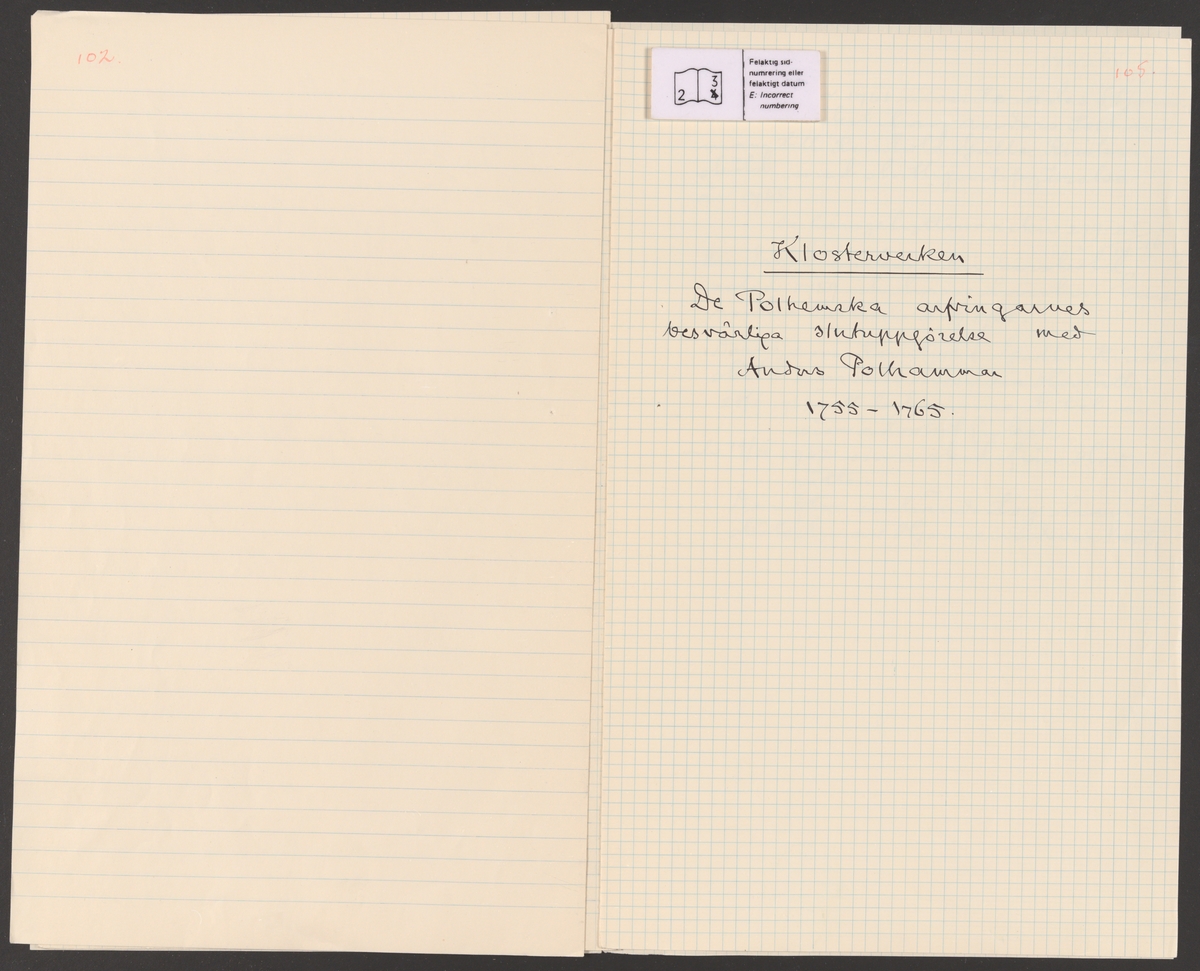 102.
105.
2 3 4
Felaktig sid-
numrering eller
felaktigt datum
E: Incorrect
numbering
Klosterverken
De Polhemska arfvingarnes
besvärliga slutuppgörelse med
Anders Polhammar
1755 – 1765.